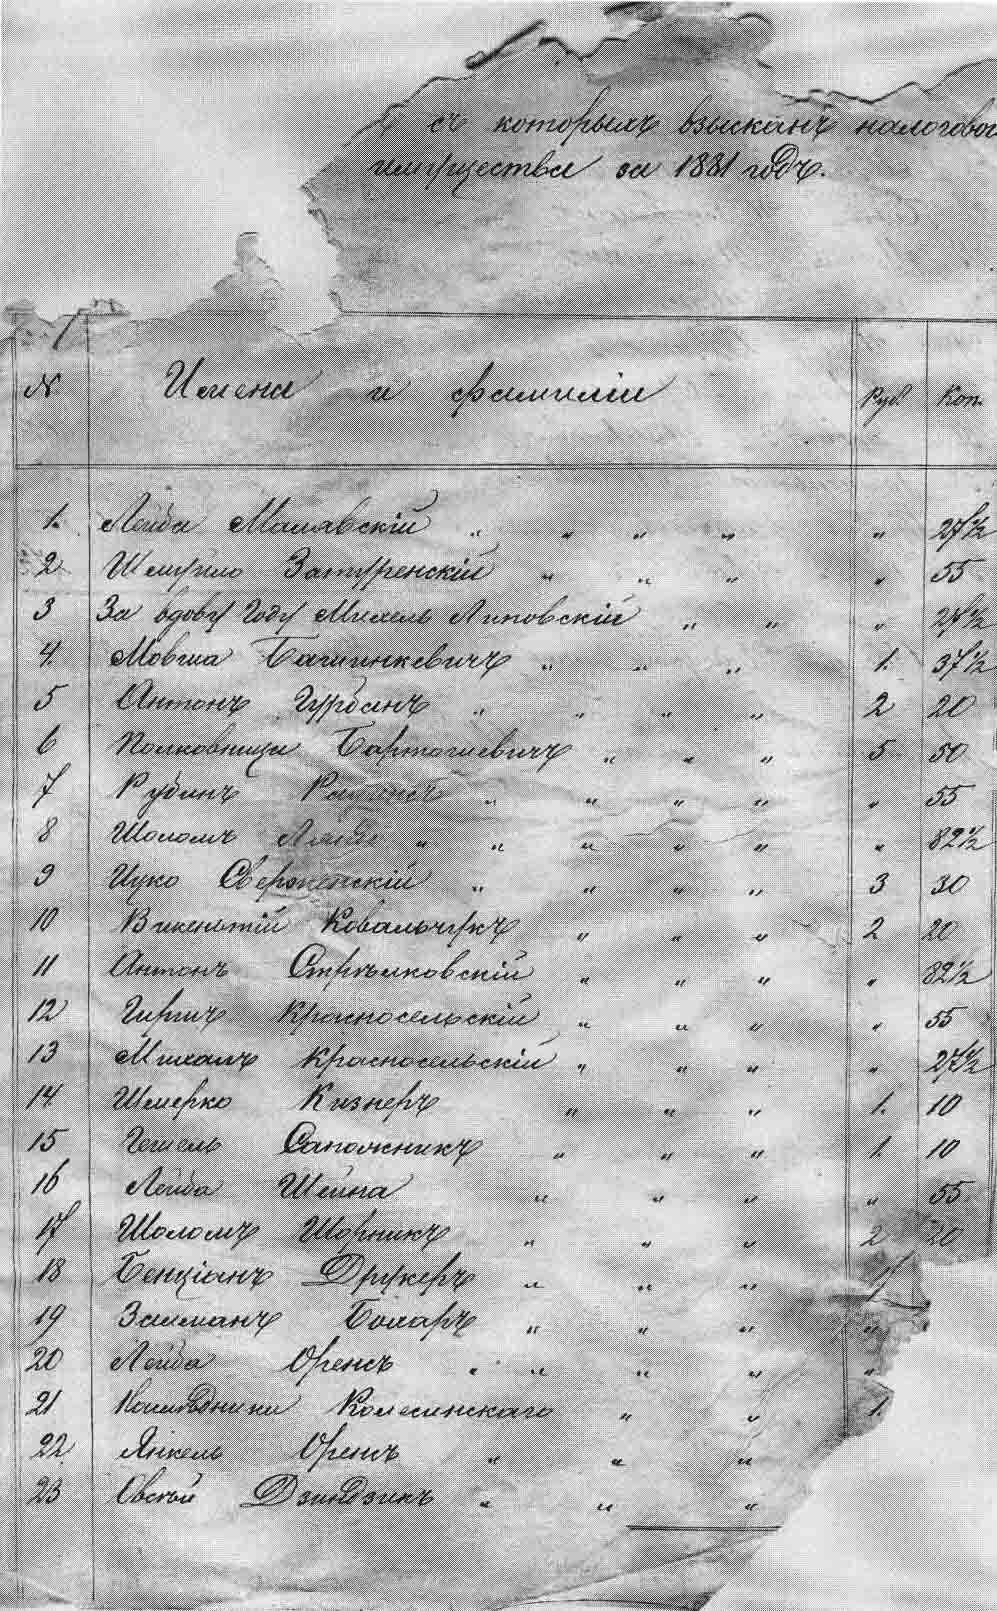 съ которыхъ взысканъ налогово
имущества за 1881 годъ.
№ Имена и фамиліи Руб. Коп.
1. Лейба Малявскій " " " " " 27½
2 Шмуйло Затуренскій " " " " 55
3 За вдову Году Михель Липовскій " " " 27½
4. Мовша Башинкевичъ " " " 1. 37½
5 Антонъ Гурбанъ " " " " 2 20
6 Полковница Бартошевичъ " " " 5 50
7 Рубинъ " " " " " 55
8 Шоломъ " " " " " " 82½
9 Ицко Сверженскій " " " " 3 30
10 Викентій Ковальчукъ " " " 2 20
11 Антонъ Стрѣлковскій " " " " 82½
12 Гиршъ Красносельскій " " " " 55
13 Михаль Красносельскій " " " " 27½
14. Шмерко Кизнеръ " " " 1. 10
15 Гешель Сапожникъ " " " 1. 10
16 Лейба Шейна " " " " 55
17 Шоломъ Шорникъ " " " 2 20
18 Бенціанъ Друкеръ " " " 1
19 Залманъ Бохаръ " " " "
20 Лейба Оренъ " " " " "
21 Наслѣдники Колесинскаго " " 1.
22 Янкель Оренъ " " "
23 Овсѣй Дзиндзикъ " " "